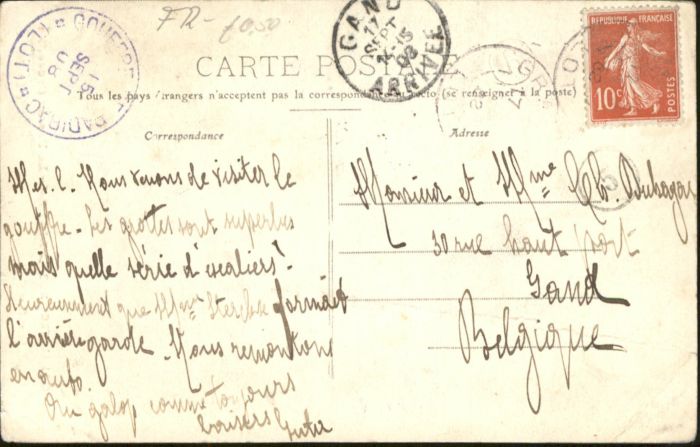 FR- £0,50
GOUFFRE DE PADIRAC (LOT)
15 SEPT 08
GAND
17 SEPT
08
ARRIVÉE
RÉPUBLIQUE FRANÇAISE
10c
POSTES
CARTE POSTALE
Tous les pays étrangers n'acceptent pas la correspondance au recto (se renseigner à la poste)
Correspondance
Nous venons de visiter le
gouffre. Les grottes sont superbes
mais quelle série d'escaliers!
Heureusement que Mme formait
l'arrière-garde. Nous remontons
en auto.
Au galop comme toujours
baisers
Adresse
Monsieur et Mme Ch.
30 rue haut port
Gand
Belgique